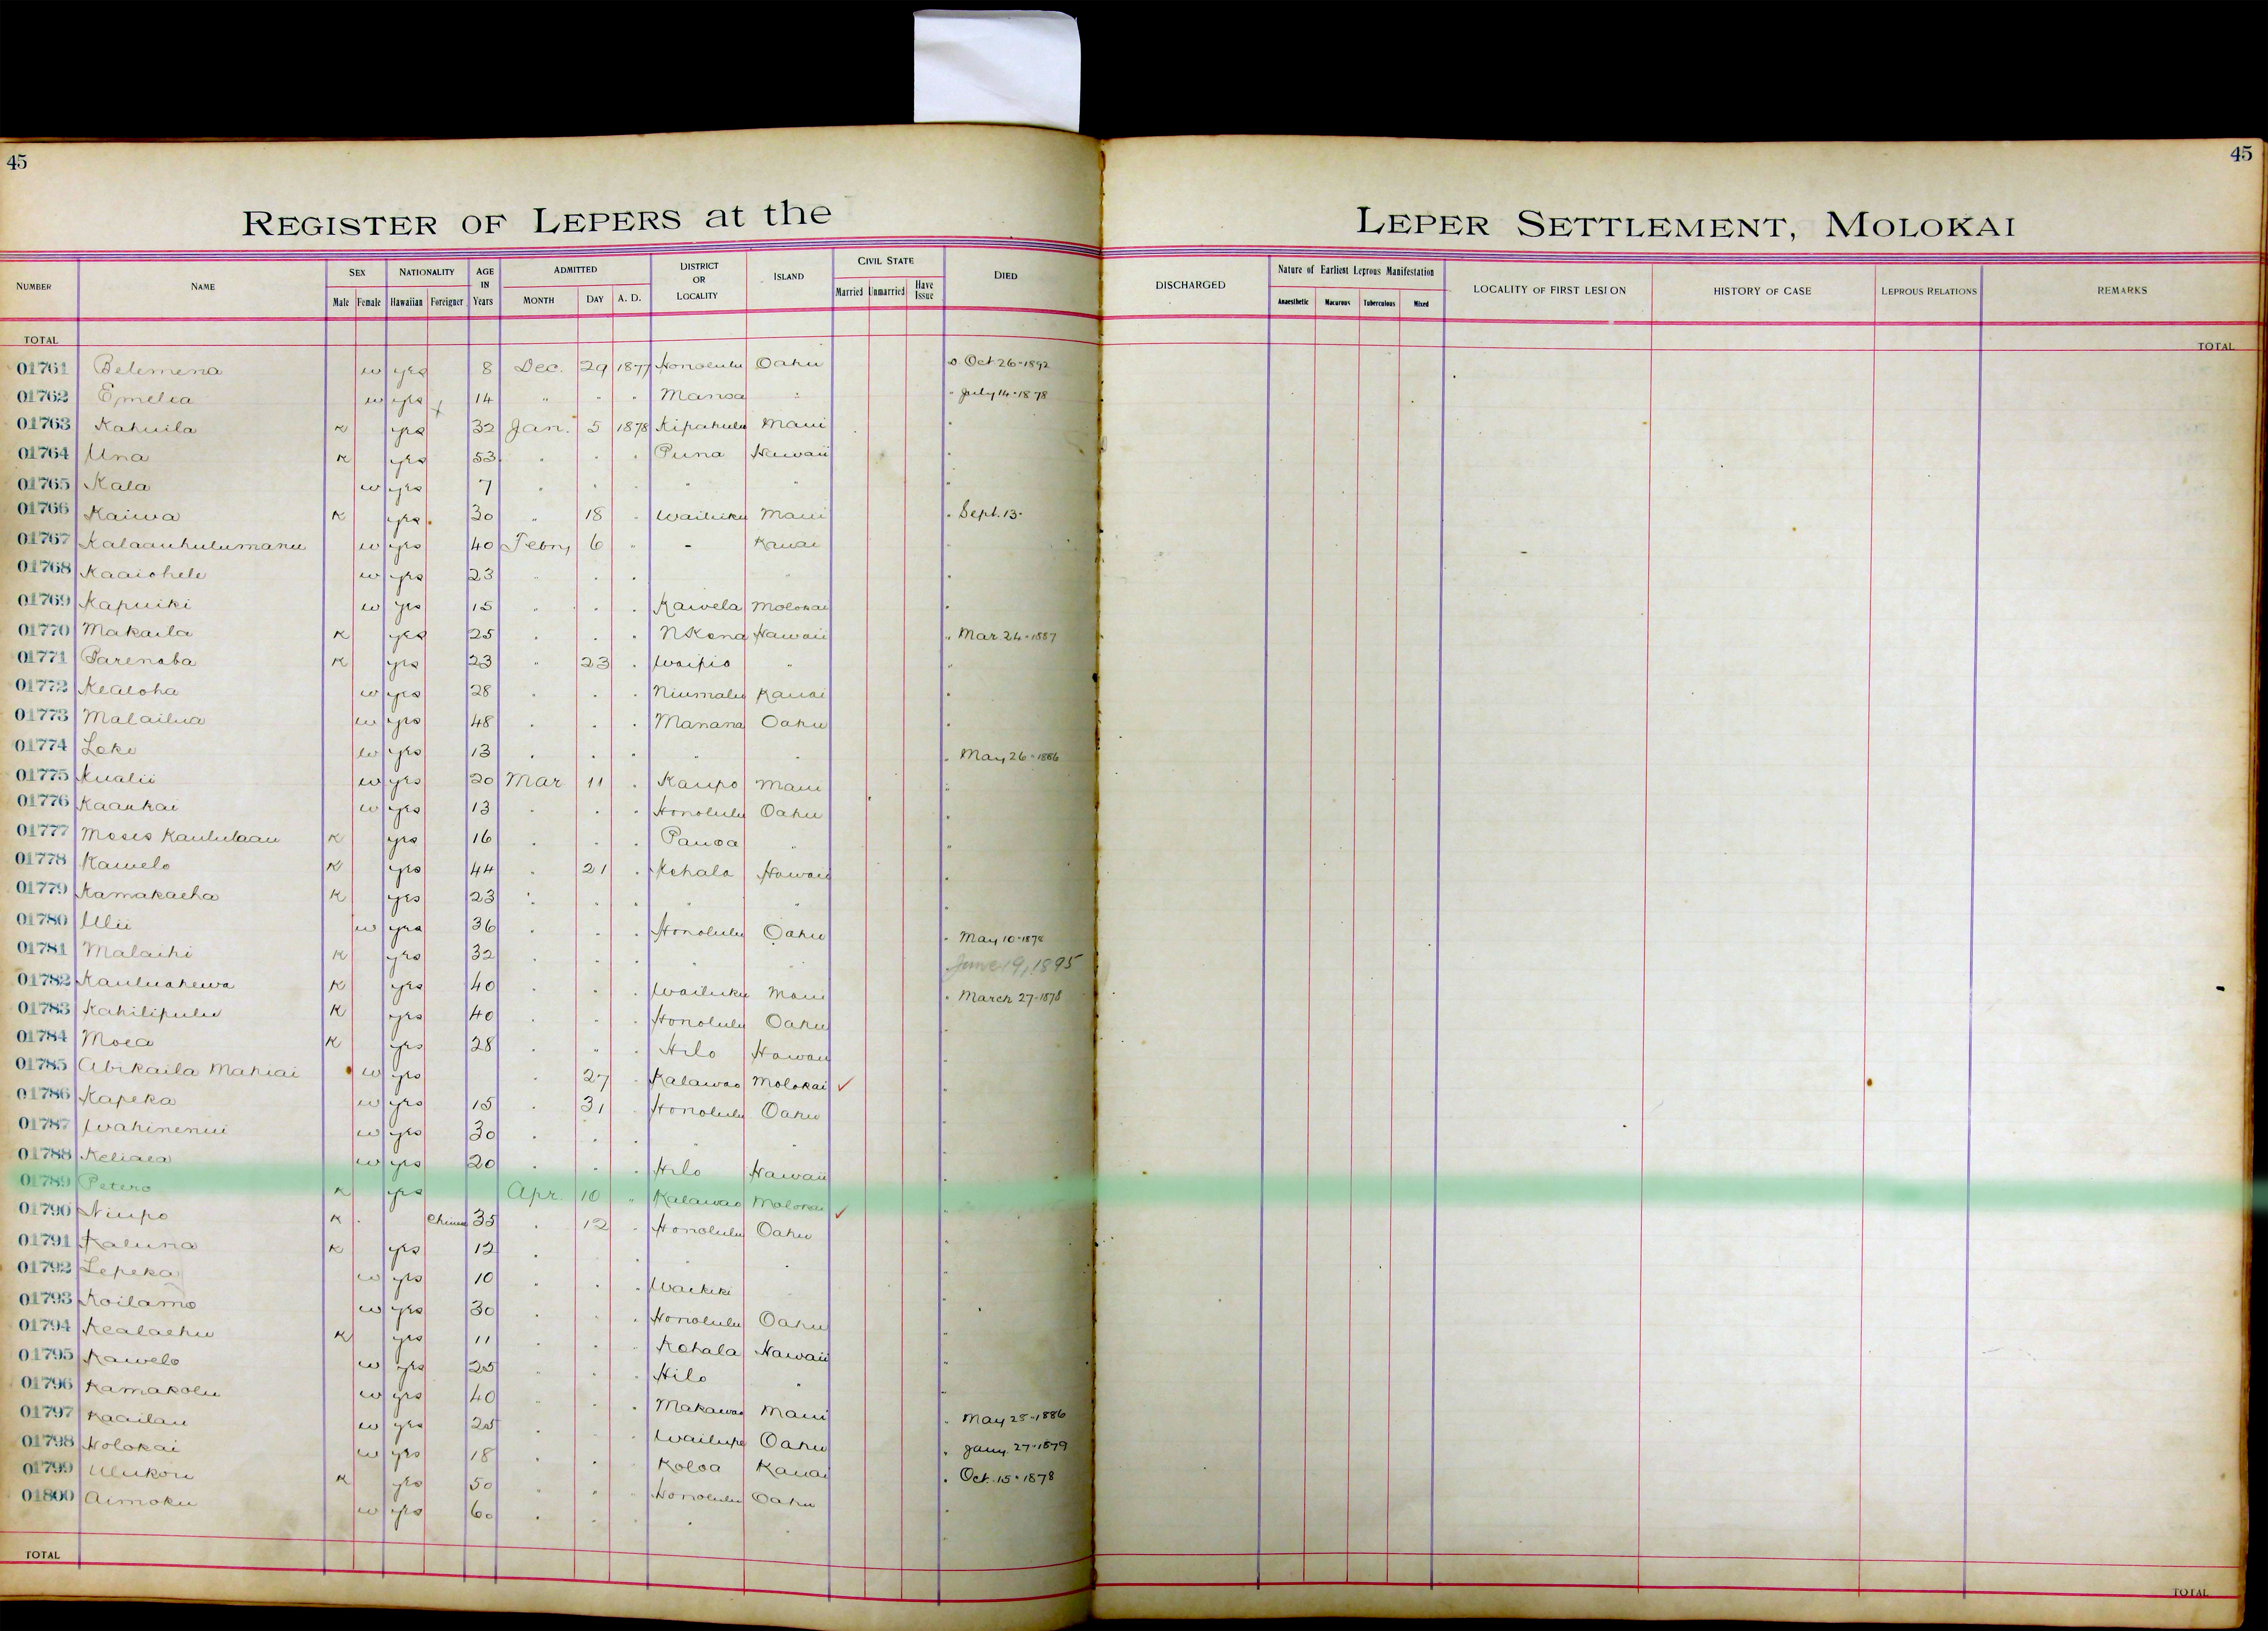 45
45
REGISTER OF LEPERS at the LEPER SETTLEMENT, MOLOKAI
NUMBER NAME SEX Male Female NATIONALITY Hawaiian Foreigner AGE IN Years ADMITTED MONTH DAY A. D. DISTRICT OR LOCALITY ISLAND CIVIL STATE Married Unmarried Have Issue DIED DISCHARGED Nature of Earliest Leprous Manifestation Anaesthetic Macurous Tuberculous Mixed LOCALITY OF FIRST LESION HISTORY OF CASE LEPROUS RELATIONS REMARKS
TOTAL TOTAL
01761 Belemena w yes 8 Dec. 29 1877 Honolulu Oahu Oct 26-1892
01762 Emelia w yes 14 " " " Manoa " " July 14-1878
01763 Kahuila K yes 32 Jan. 5 1878 Kipahulu Maui "
01764 Una K yes 53 " " " Puna Hawaii "
01765 Kala w yes 7 " " " " " "
01766 Kaiwa K yes 30 " 18 " Wailuku Maui " Sept. 13-
01767 Kalaauhulumanu w yes 40 Febry 6 " - Kauai "
01768 Kaaiohele w yes 23 " " " " "
01769 Kapuiki w yes 15 " " " Kawela Molokai "
01770 Makaila K yes 25 " " " N Kona Hawaii " Mar 24-1887
01771 Parenaba K yes 23 " 23 " Waipio " "
01772 Kealoha w yes 28 " " " Niumalu Kauai "
01773 Malailua w yes 48 " " " Manana Oahu "
01774 Loke w yes 13 " " " " " " May 26-1886
01775 Kualii w yes 20 Mar 11 " Kaupo Maui "
01776 Kaaukai w yes 13 " " " Honolulu Oahu "
01777 Moses Kaululaau K yes 16 " " " Pauoa " "
01778 Kawelo K yes 44 " 21 " Kohala Hawaii "
01779 Kamakaeha K yes 23 " " " " " "
01780 Ulii w yes 36 " " " Honolulu Oahu " May 10-1878
01781 Malaihi K yes 32 " " " " " June 19, 1895
01782 Kauluahewa K yes 40 " " " Wailuku Maui " March 27-1878
01783 Kahilipulu K yes 40 " " " Honolulu Oahu "
01784 Moea K yes 28 " " " Hilo Hawaii "
01785 Abikaila Mahiai w yes " 27 " Kalawao Molokai ✓ "
01786 Kapeka w yes 15 " 31 " Honolulu Oahu "
01787 Wahinenui w yes 30 " " " " " "
01788 Keliaea w yes 20 " " " Hilo Hawaii "
01789 Petero K yes Apr. 10 " Kalawao Molokai ✓ "
01790 Niupo K Chinese 35 " 12 " Honolulu Oahu "
01791 Kaluna K yes 12 " " " " " "
01792 Lepeka w yes 10 " " " Waikiki " "
01793 Koilamo w yes 30 " " " Honolulu Oahu "
01794 Kealaehu K yes 11 " " " Kohala Hawaii "
01795 Kawelo w yes 25 " " " Hilo " "
01796 Kamakolu w yes 40 " " " Makawao Maui " May 25-1886
01797 Kaailau w yes 25 " " " Wailupe Oahu " Jany. 27-1879
01798 Holokai w yes 18 " " " Koloa Kauai " Oct. 15-1878
01799 Ulukou K yes 50 " " " Honolulu Oahu "
01800 Aimoku w yes 60 " " " " " "
TOTAL TOTAL